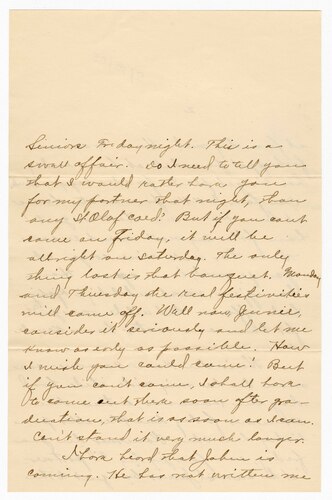 Seniors Friday night. This is a
swell affair. Do I need to tell you
that I would rather have you
for my partner that night, than
any St Olaf coed? But if you can't
come on Friday, it will be
allright on Saturday. The only
thing lost is that banquet. Monday
and Thursday the real festivities
will come off. Well now, Junie,
consider it seriously and let me
know as early as possible. How
I wish you could come! But
if you can't come, I shall have
to come out there soon after gra-
duation, that is as soon as I can.
Can't stand it very much longer.
I have heard that John is
coming. He has not written me